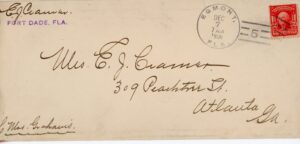 E J Cramer
FORT DADE, FLA.
EGMONT.
DEC
7
FLA.
5
Mrs. E. J. Cramer
309 Peachtree St.
Atlanta
Ga.
Mrs.